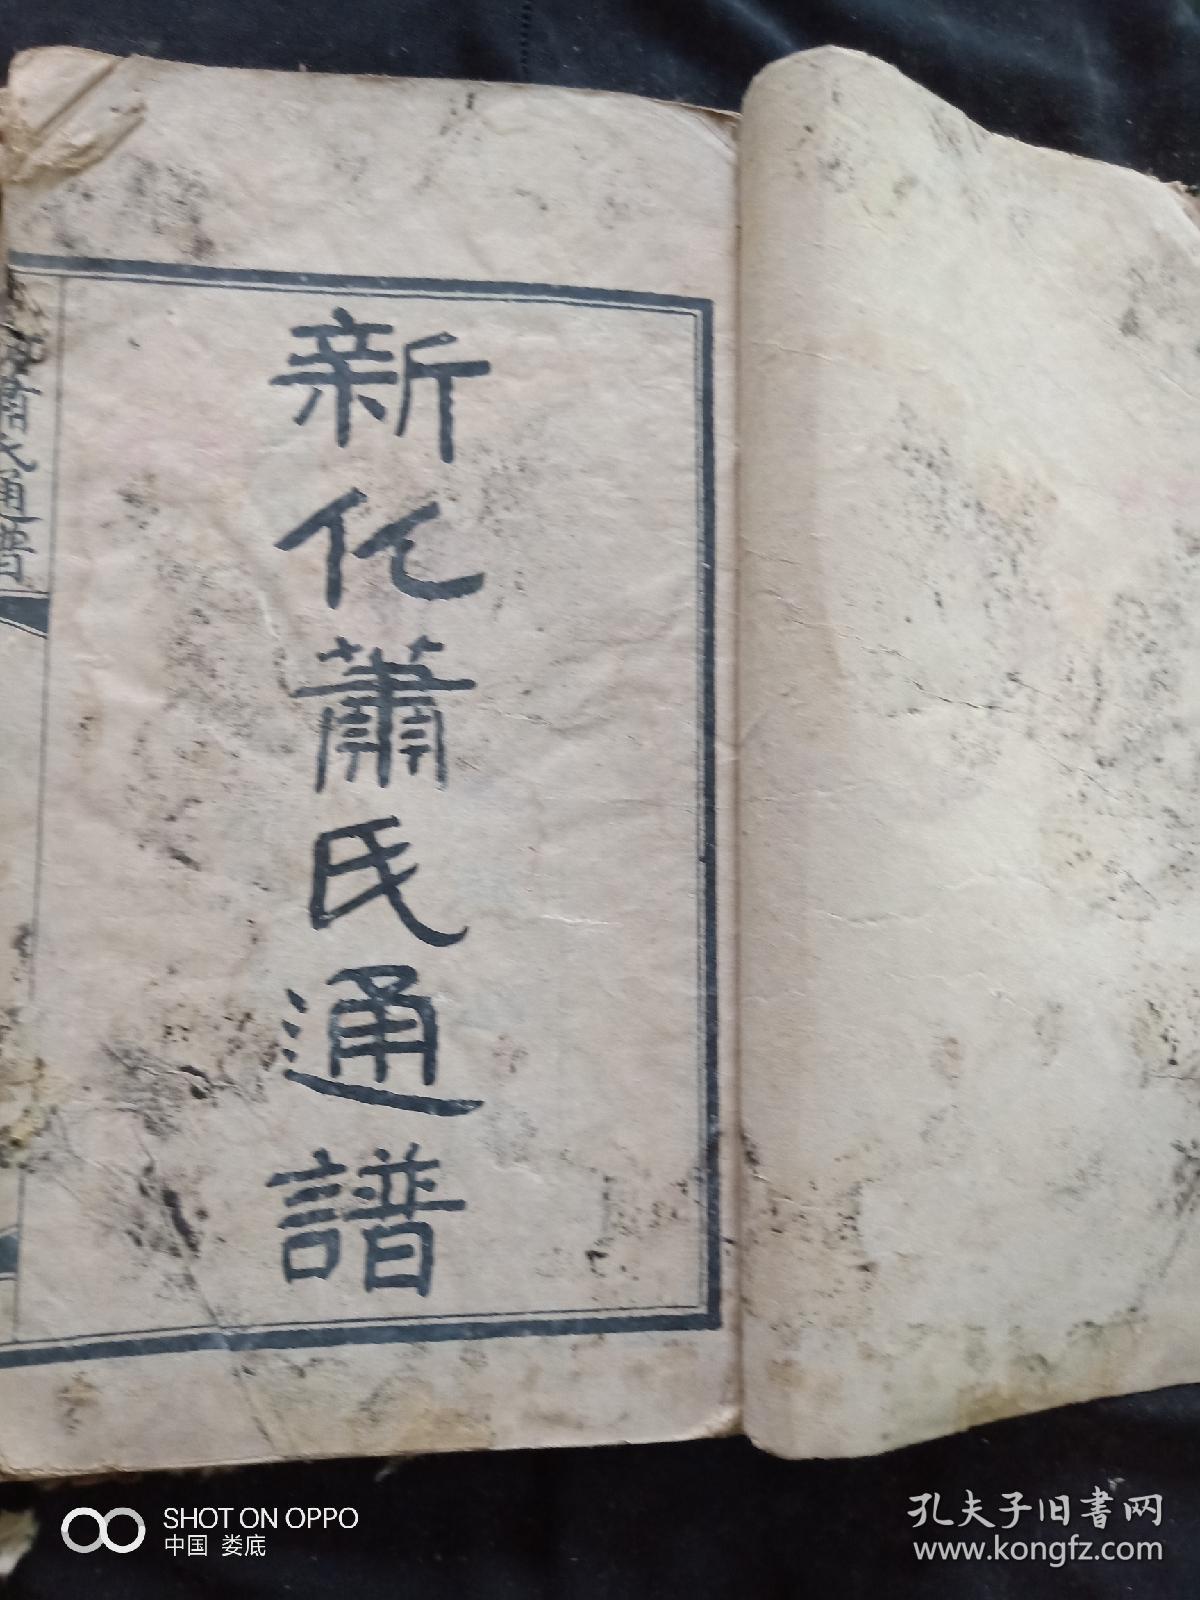 新化蕭氏通譜
氏通譜
SHOT ON OPPO
中国 娄底
孔夫子旧書网
www.kongfz.com